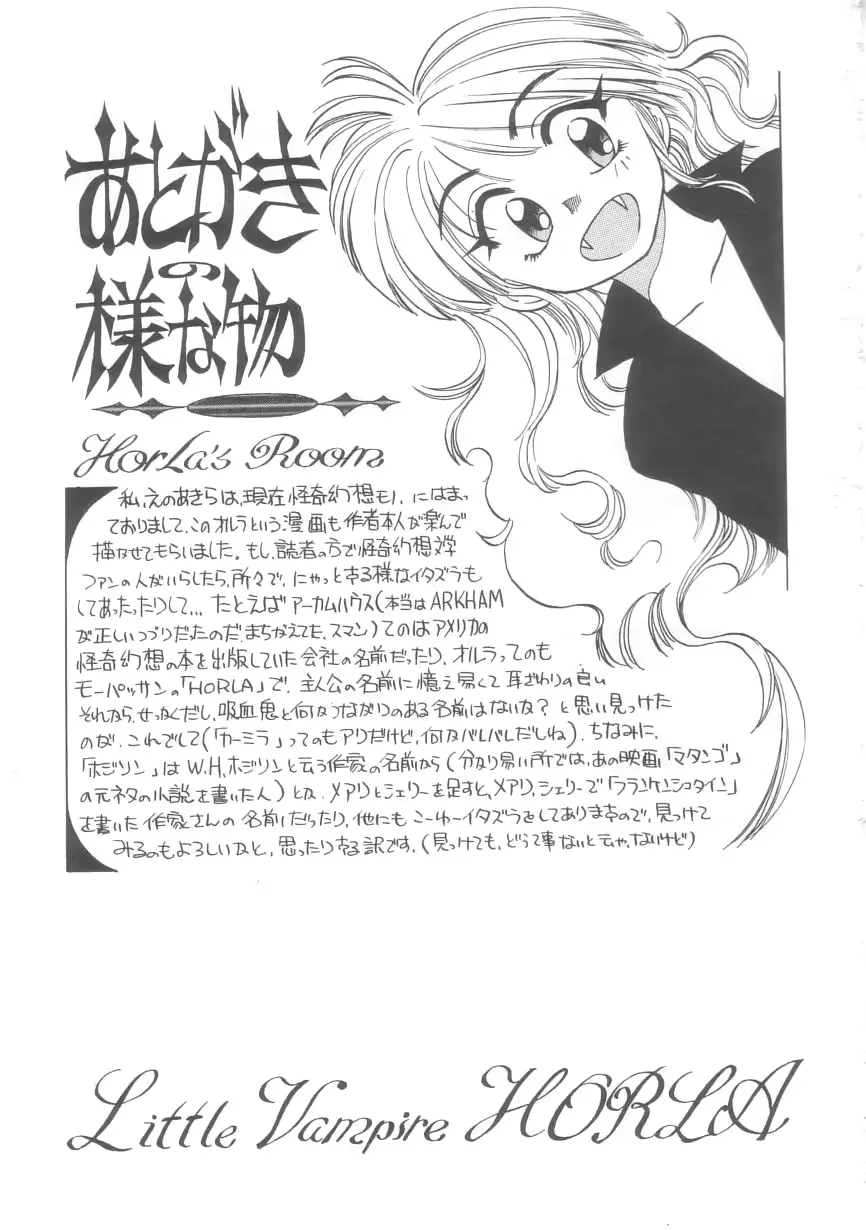 あとがき
の
様な物
HorLa's Room
私、えのあきらは、現在怪奇幻想モノ、にはまっ
ておりまして、このオルラという漫画も作者本人が楽んで
描かせてもらいました。もし、読者の方で怪奇幻想文学
ファンの人がいらしたら、所々で、にやっとする様なイタズラも
してあったりして... たとえばアーカムハウス(本当はARKHAM
が正しいつづりだったのだ、まちがえてた、スマン)てのはアメリカの
怪奇幻想の本を出版していた会社の名前だったり、オルラってのも
モーパッサンの「HORLA」で、主人公の名前に憶え易くて耳ざわりの良い
それなら、せっかくだし、吸血鬼と何かつながりのある名前はないか?と思い見つけた
のが、これでして(「カーミラ」ってのもアリだけど、何かバレバレだしね)、ちなみに、
「ホジソン」はW.H.ホジソンと云う作家の名前から(分かり易い所では、あの映画「マタンゴ」
の元ネタの小説を書いた人)とか、メアリとシェリーを足すと、メアリ、シェリーで「フランケンシュタイン」
を書いた作家さんの名前だったり、他にもこーゆーイタズラをしてありますので、見つけて
みるのもよろしいかと、思ったりする訳です。(見つけても、どうて事ないと云や、ないけど)
Little Vampire HORLA